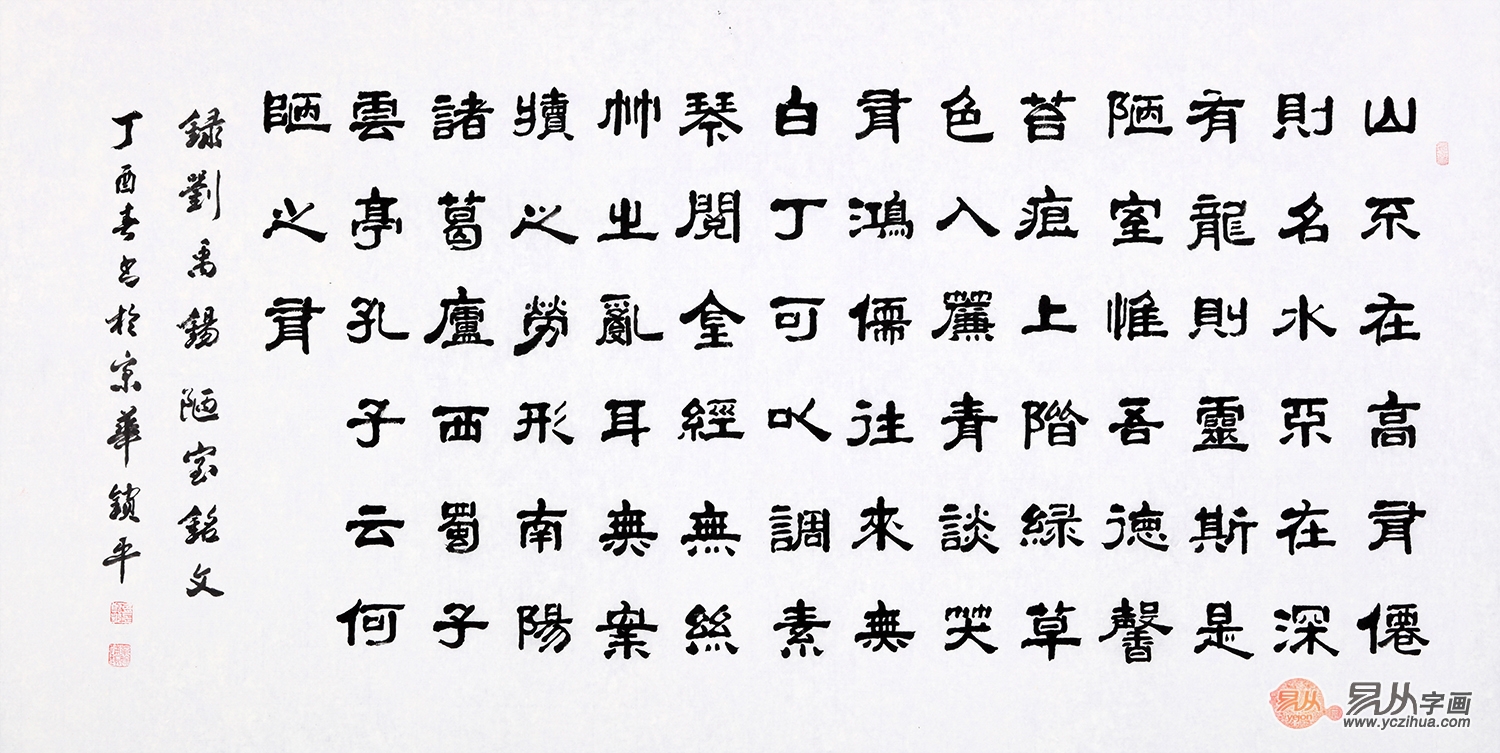 山不在高有僊
則名水不在深
有龍則靈斯是
陋室惟吾德馨
苔痕上階緑草
色入簾青談笑
有鴻儒往來無
白丁可以調素
琴閱金經無絲
竹之亂耳無案
牘之勞形南陽
諸葛廬西蜀子
雲亭孔子云何
陋之有
録劉禹錫陋室銘文
丁酉春书於京華鎖平
易从
易从字画
www.yczihua.com